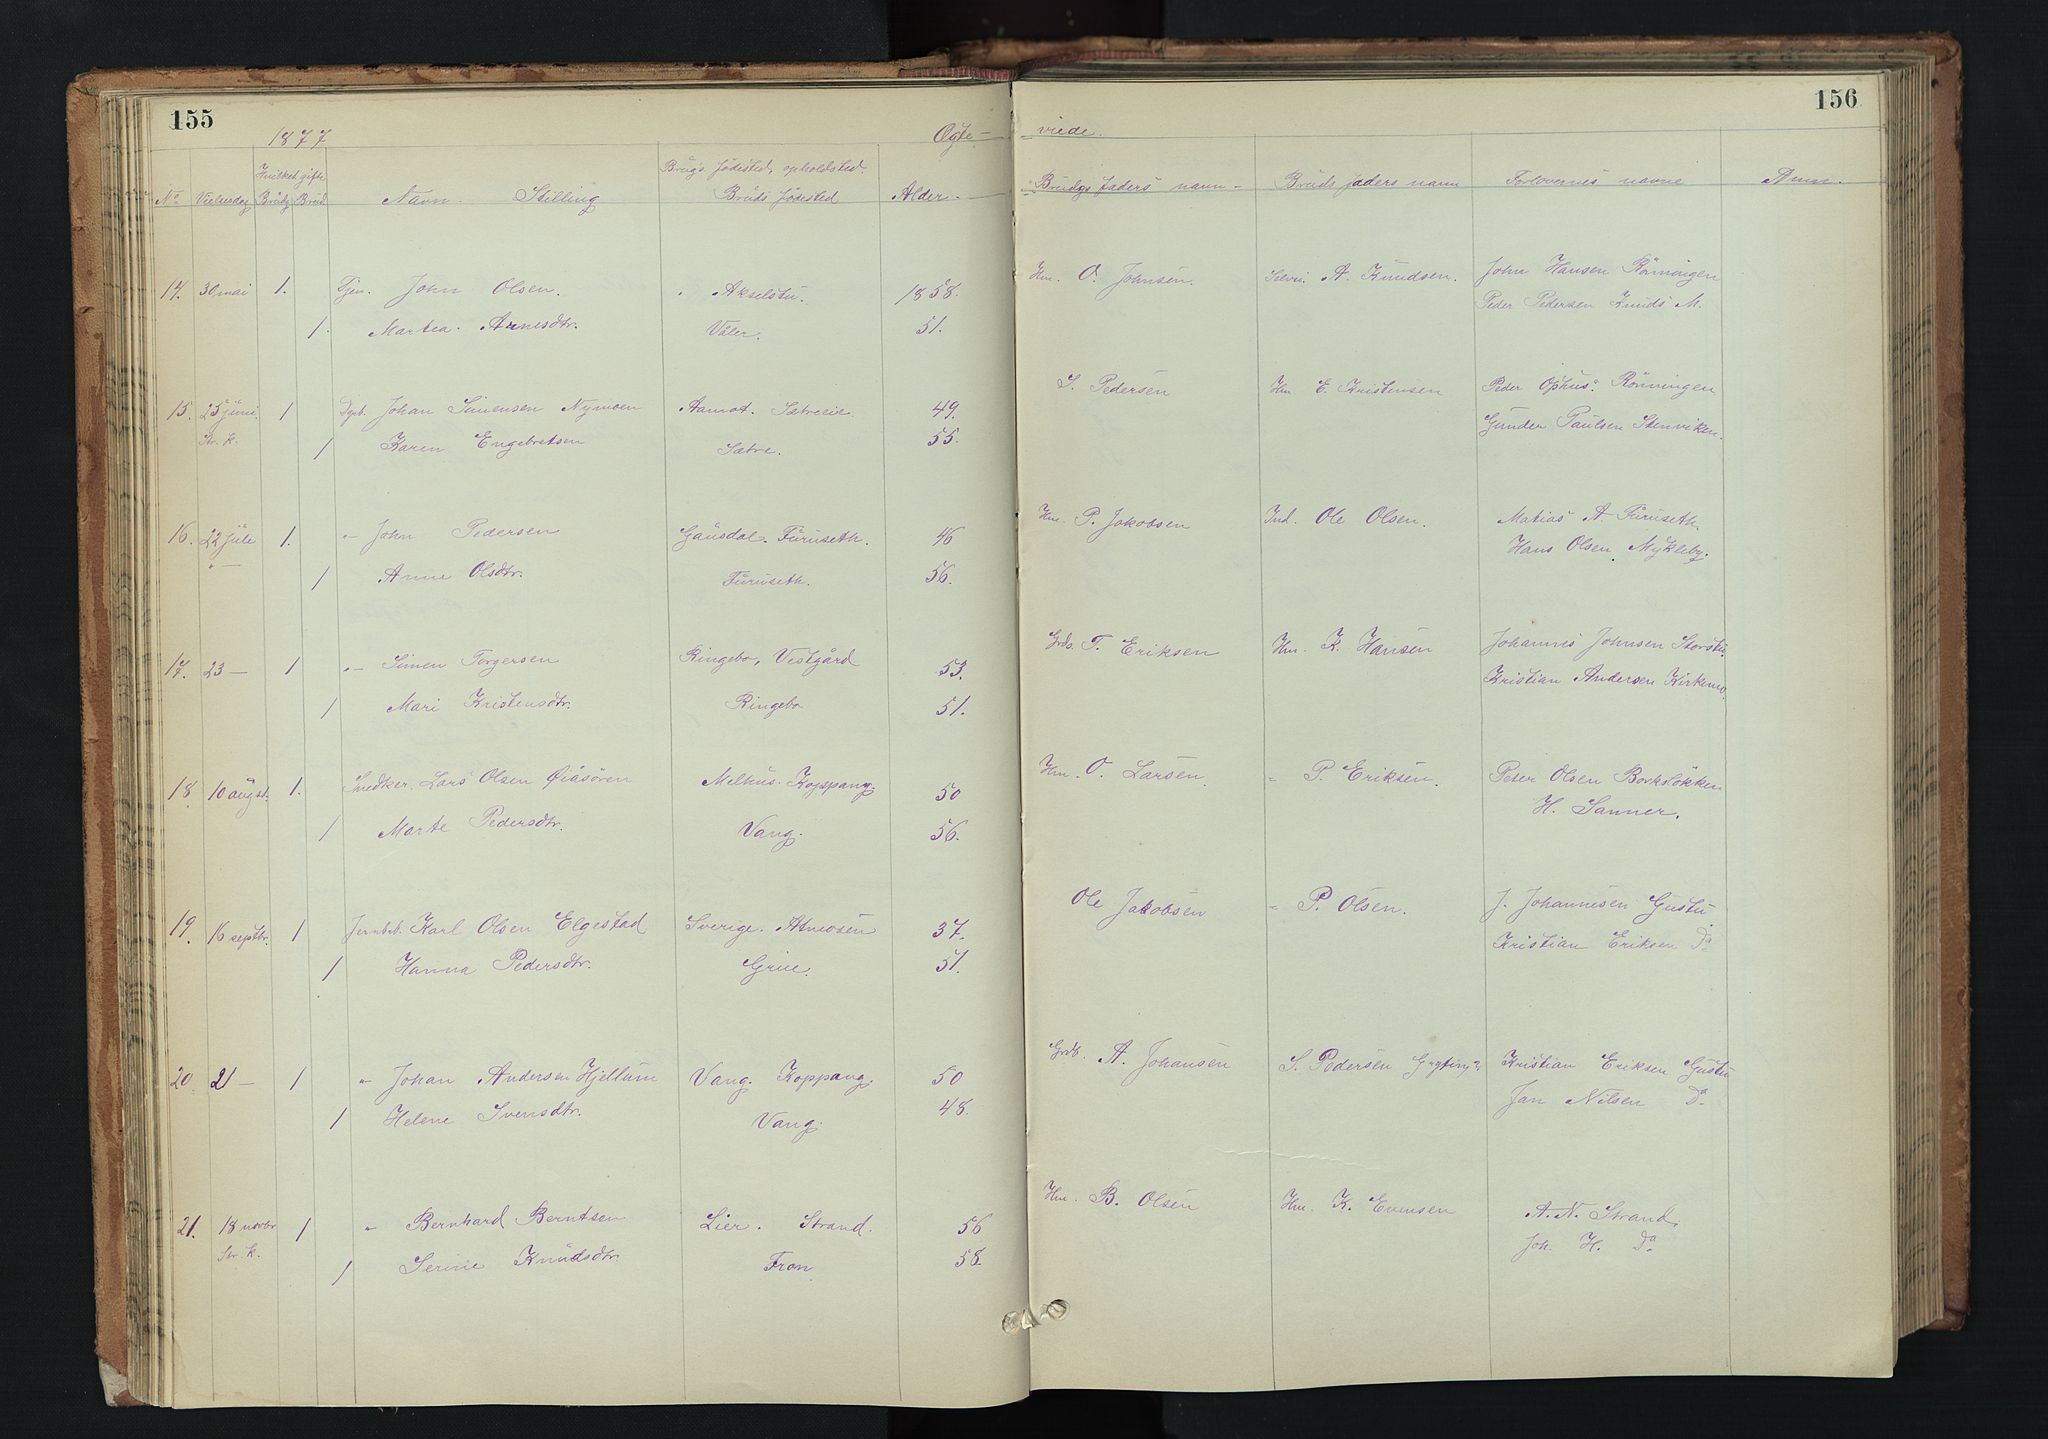 155
156
1877
Ægte-
viede.
No Vielsedag Hvilket gifte Brudg Brud Navn. Stilling Brugs. fødested, opholdsted. Bruds fødested Alder.
Brudgs faders navn - Bruds faders navn Forlovernes navne Anm.
14. 30 mai 1. Tjen. John Olsen. Akselstu. 1858. Hm. O. Johnsen. Selvei. A. Knudsen. John Hansen Rönningen
1. Martea. Arnesdtr. Våler. 51. Peder Pedersen Knuds M.
15. 25 juni. 1 Johan Simensen Nymoen Aamot. Sætreeie 49. S. Pedersen Hm. E. Kristensen Peder Ophus. Rönningen
Str. k. 1 Karen Engebretsen Sætre. 55. Gunder Paulsen Stenviken.
16. 22 jule 1. " John Pedersen Gausdal. Furuseth. 46 Hm. P. Jakobsen Ind. Ole Olsen. Matias A. Furuseth.
" — 1 Anne Olsdtr. Furuseth. 56. Hans Olsen. Mykleby.
17. 23 — 1 " Simen Torgersen Ringebo, Vestgård 53. Grds. T. Eriksen Hm. K. Hansen Johannes Johnsen Storstu.
1 Mari Kristensdtr. Ringebo 51. Kristian Andersen Kirkemo.
18 10 augst. 1. Snedker. Lars Olsen Øiåsören Melhus. Koppang. 50 Hm. O. Larsen. " P. Eriksen. Peter Olsen Borkslökken
1 Marte Pedersdtr. Vang. 56. H. Sanner.
19. 16 septbr. 1 Jernbeb. Karl Olsen Elgestad Sverige. Atneosen 37. Ole Jakobsen " P. Olsen. J. Johannesen Gustu
1 Hanna Pedersdtr. Grue. 51. Kristian Eriksen Do
20. 21 — 1 " Johan Andersen Hjellum Vang. Koppang. 50 Grdb. A. Johansen S. Pedersen Kristian Eriksen Gustu
1 Helene Svensdtr. Vang. 48. Jan Nilsen Do
21. 18 novbr 1 " Bernhard Berntsen Lier. Strand. 56 Hm. B. Olsen Hm. K. Evensen A. N. Strand.
Str. k. 1 Serine Knudsdtr. Fron 58. Joh. H. Do